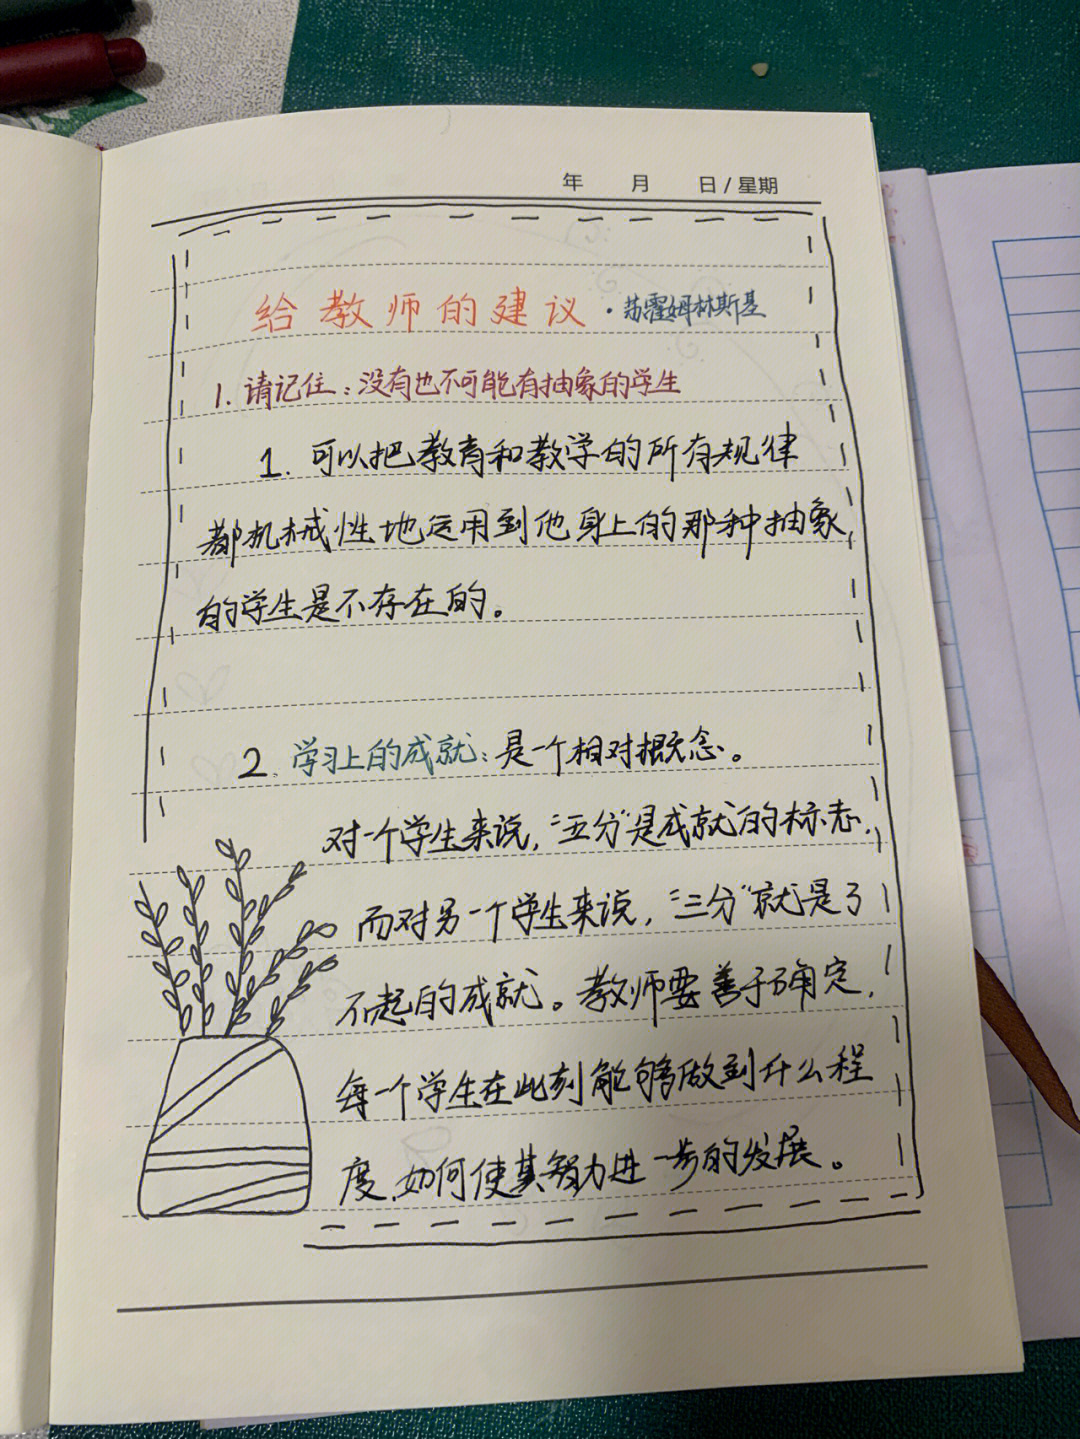 年 月 日/星期
给教师的建议·苏霍姆林斯基
1.请记住:没有也不可能有抽象的学生
1.可以把教育和教学的所有规律
都机械性地运用到他身上的那种抽象
的学生是不存在的。
2.学习上的成就:是一个相对概念。
对一个学生来说,“五分”是成就的标志,
而对另一个学生来说,“三分”就是了
不起的成就。教师要善于确定,
每一个学生在此刻能够做到什么程
度,如何使其智力进一步的发展。